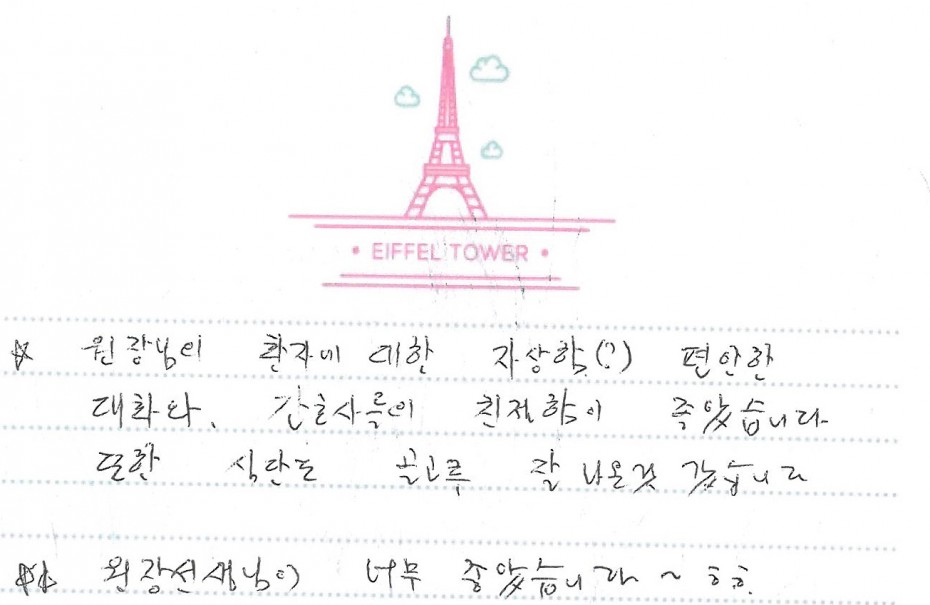 • EIFFEL TOWER •
☆ 원장님의 환자에 대한 자상함(?) 편안한
대화와, 간호사들의 친절함이 좋았습니다.
또한 식단도 골고루 잘 나온것 같습니다
☆☆ 원장선생님이 너무 좋았습니다~ ㅎㅎ.